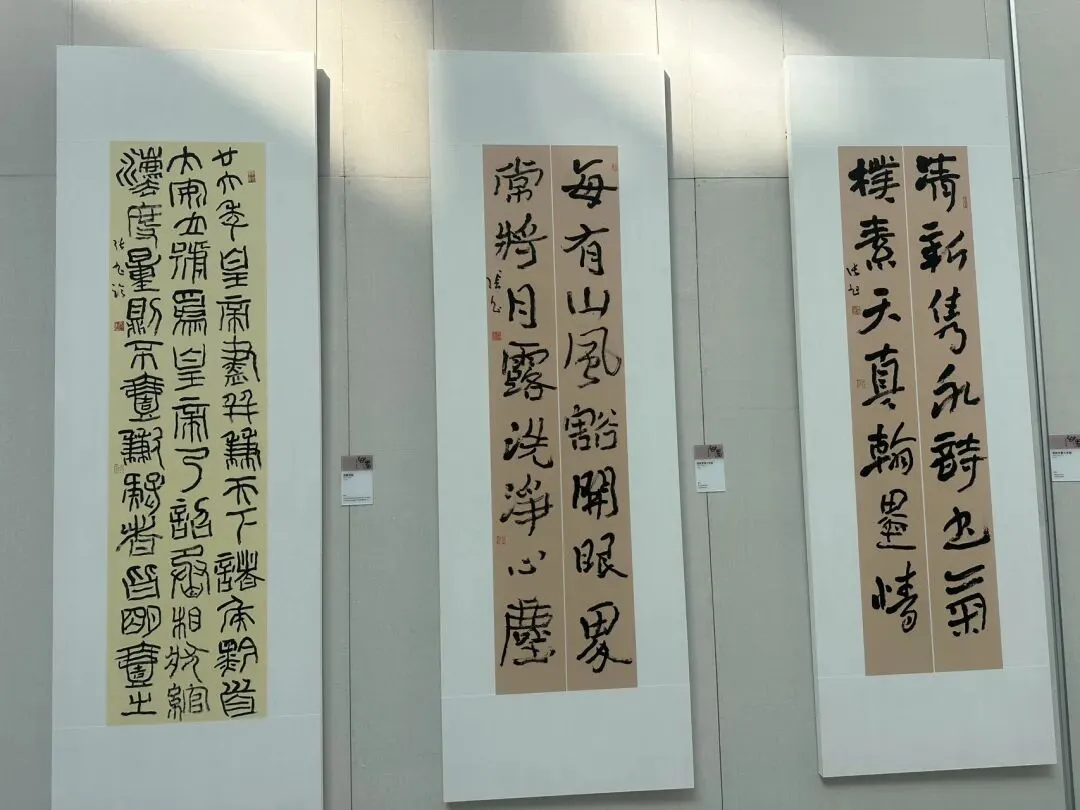 廿六年皇帝盡并兼天下諸侯黔首
大安立號爲皇帝乃詔丞相狀綰
灋度量則不壹歉疑者皆明壹之
每有山風豁開眼界
常將月露洗淨心塵
清新雋永詩書氣
樸素天真翰墨情